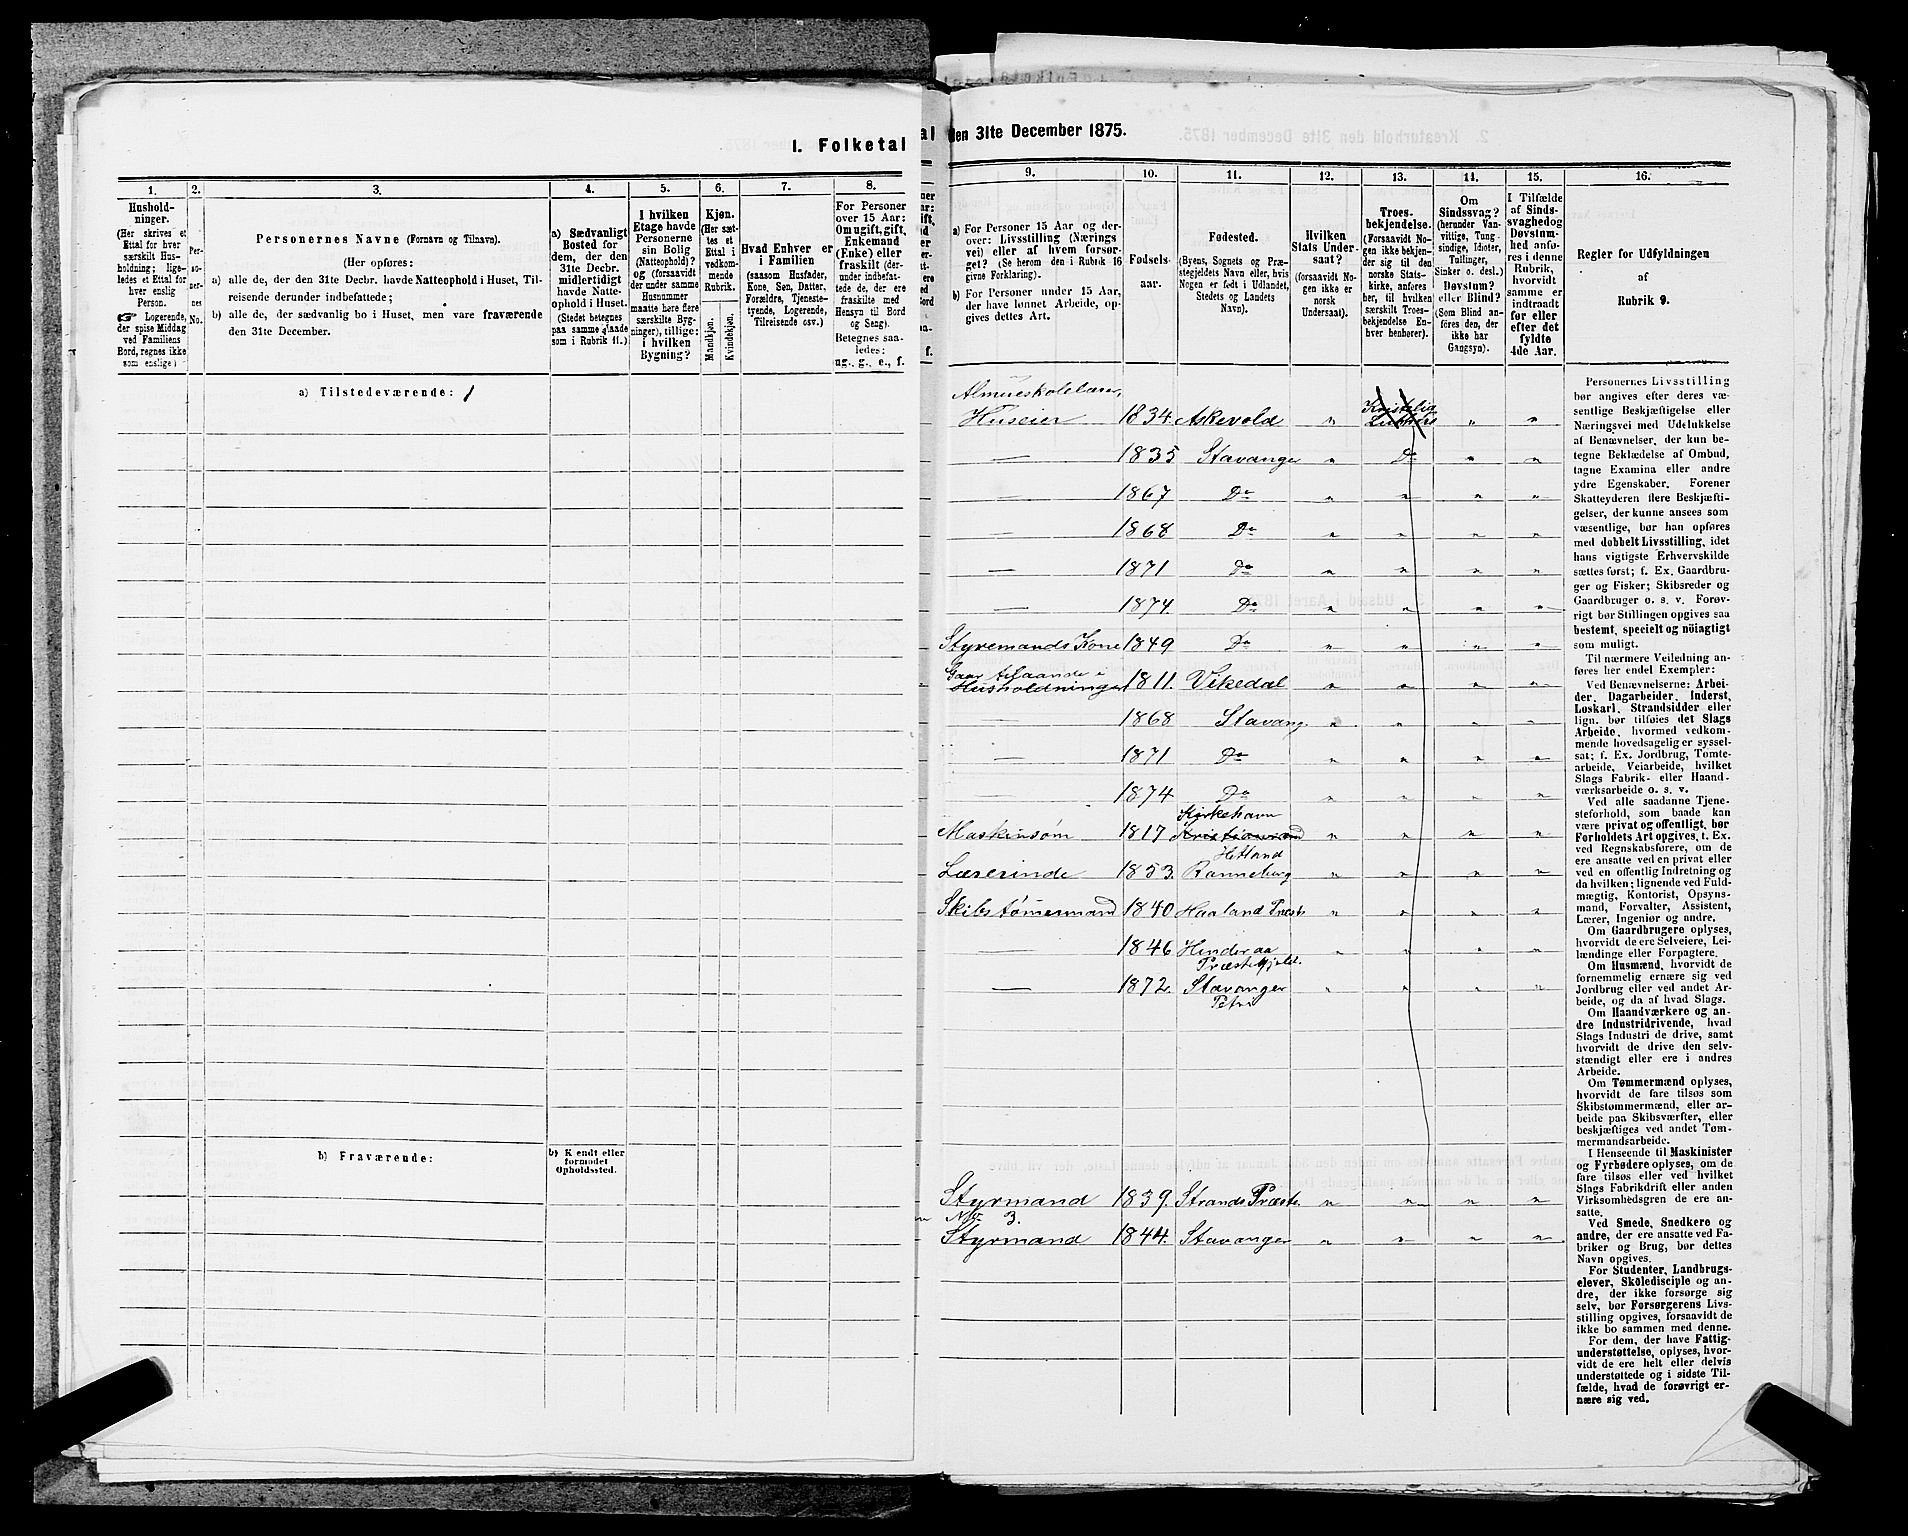 I. Folketal
den 31te December 1875.
1.
2.
3.
4.
5.
6.
7.
8.
Hushold-
ninger.
(Her skrives et
Ettal for hver
særskilt Hus-
holdning; lige-
ledes et Ettal for
hver enslig
Person.
Logerende,
der spise Middag
ved Familiens
Bord, regnes ikke
som enslige)
Per-
so-
ner-
nes
No.
Personernes Navne (Fornavn og Tilnavn).
(Her opføres:
a) alle de, der den 31te Decbr. havde Natteophold i Huset, Til-
reisende derunder indbefattede;
b) alle de, der sædvanlig bo i Huset, men vare fraværende
den 31te December.
a) Sædvanligt
Bosted for
dem, der den
31te Decbr.
midlertidigt
havde Natte-
ophold i Huset.
(Stedet betegnes
paa samme Maade
som i Rubrik 11.)
I hvilken
Etage havde
Personerne
sin Bolig
(Natteophold)?
og (forsaavidt
der under samme
Husnummer
maatte høre flere
særskilte Byg-
ninger), tillige:
i hvilken
Bygning?
Kjøn.
(Her sæt-
tes et
Ettal i
vedkom-
mende
Rubrik.
Mandkjøn.
Kvindekjøn.
Hvad Enhver er
i Familien
(saasom Husfader,
Kone, Søn, Datter,
Forældre, Tjeneste-
tyende, Logerende,
Tilreisende osv.)
For Personer
over 15 Aar:
Om ugift, gift,
Enkemand
(Enke) eller
fraskilt (der-
under indbefat-
tede de, der ere
fraskilte med
Hensyn til Bord
og Seng).
Betegnes saa-
ledes:
ug., g., e., f.
a) Tilstedeværende: 1
b) Fraværende:
b) Kjendt eller
formodet
Opholdssted.
9.
10.
11.
12.
13.
14.
15.
16.
a) For Personer 15 Aar og der-
over: Livsstilling (Nærings
vei) eller af hvem forsør-
get? (Se herom den i Rubrik 16
givne Forklaring).
b) For Personer under 15 Aar,
der have lønnet Arbeide, op-
gives dettes Art.
Fødsels-
aar.
Fødested.
(Byens, Sognets og Præ-
stegjeldets Navn eller, hvis
Nogen er født i Udlandet,
Stedets og Landets
Navn).
Hvilken
Stats Under-
saat?
(forsaavidt No-
gen ikke er
norsk
Undersaat).
Troes-
bekjendelse.
(Forsaavidt No-
gen ikke bekjen-
der sig til den
norske Stats-
kirke, anføres
her, til hvilken
særskilt Troes-
bekjendelse En-
hver henhører).
Om
Sindssvag?
(herunder Van-
vittige, Tung-
sindige, Idioter,
Tullinger,
Sinker o. desl.)
Døvstum?
eller Blind?
(Som Blind an-
føres den, der
ikke har
Gangsyn).
I Tilfælde
af Sinds-
svaghed og
Døvstum-
hed anfø-
res i denne
Rubrik,
hvorvidt
samme er
indtraadt
før eller
efter det
fyldte
4de Aar.
Regler for Udfyldningen
af
Rubrik 9.
Almueskolelærer,
Huseier 1834. Askevold " Kristelig Luthers " "
— 1835 Stavanger " Do " "
— 1867 Do " " " "
— 1868 Do " " " "
— 1871 Do " " " "
— 1874. Do " " " "
Styremands Kone 1849 Do " " " "
Gaar tilhaande i
Husholdningen 1811. Vikedal " " " "
— 1868 Stavang. " " " "
— 1871 Do " " " "
— 1874 Do " " " "
Kirkehavn
Maskinsøm 1817 Kristiansand " " " "
Hetland
Lærerinde 1853. Ranneberg " " " "
Skibstømermand 1840 Haaland Præst " " " "
— 1846 Hinderaa " " " "
Præstegjeld.
— 1872. Stavanger " " " "
Petri
Styrmand 1839. Strands Præste. " " " "
No 3.
Styrmand 1844. Stavanger " " " "
Personernes Livsstilling
bør angives efter deres væ-
sentlige Beskjæftigelse eller
Næringsvei med Udelukkelse
af Benævnelser, der kun be-
tegne Beklædelse af Ombud,
tagne Examina eller andre
ydre Egenskaber. Forener
Skatteyderen flere Beskjæfti-
gelser, der kunne ansees som
væsentlige, bør han opføres
med dobbelt Livsstilling, idet
hans vigtigste Erhvervskilde
sættes først; f. Ex. Gaardbru-
ger og Fisker; Skibsreder og
Gaardbruger o. s. v. Forøv-
rigt bør Stillingen opgives saa
bestemt, specielt og nöiagtigt
som muligt.
Til nærmere Veiledning an-
føres her endel Exempler:
Ved Benævnelserne: Arbei-
der, Dagarbeider, Inderst,
Løskarl, Strandsidder eller
lign. bør tilføies det Slags
Arbeide, hvormed vedkom-
mende hovedsagelig er syssel-
sat; f. Ex. Jordbrug, Tomte-
arbeide, Veiarbeide, hvilket
Slags Fabrik- eller Haand-
værksarbeide o. s. v.
Ved alle saadanne Tjene-
steforhold, som baade kan
være privat og offentligt, bør
Forholdets Art opgives, t. Ex.
ved Regnskabsførere, om de
ere ansatte ved en privat eller
ved en offentlig Indretning og
da hvilken; lignende ved Fuld-
mægtig, Kontorist, Opsyns-
mand, Forvalter, Assistent,
Lærer, Ingeniør og andre.
Om Gaardbrugere oplyses,
hvorvidt de ere Selveiere, Lei-
lændinge eller Forpagtere.
Om Husmænd, hvorvidt de
fornemmelig ernære sig ved
Jordbrug eller ved andet Ar-
beide, og da af hvad Slags.
Om Haandværkere og an-
dre Industridrivende, hvad
Slags Industri de drive, samt
hvorvidt de drive den selv-
stændigt eller ere i andres
Arbeide.
Om Tømmermænd oplyses,
hvorvidt de fare tilsøs som
Skibstømmermænd, eller ar-
beide paa Skibsværfter, eller
beskjæftiges ved andet Tøm-
mermandsarbeide.
I Henseende til Maskinister
og Fyrbødere oplyses, om de
fare tilsøs eller ved hvilket
Slags Fabrikdrift eller anden
Virksomhedsgren de ere an-
satte.
Ved Smede, Snedkere og
andre, der ere ansatte ved Fa-
briker og Brug, bør dettes
Navn opgives.
For Studenter, Landbrugs-
elever, Skoledisciple og an-
dre, der ikke forsørge sig
selv, bør Forsørgerens Livs-
stilling opgives, forsaavidt de
ikke bo sammen med denne.
For dem, der have Fattig-
understøttelse, oplyses, hvor-
vidt de ere helt eller delvis
understøttede og i sidste Til-
fælde, hvad de forøvrigt er-
nære sig ved.